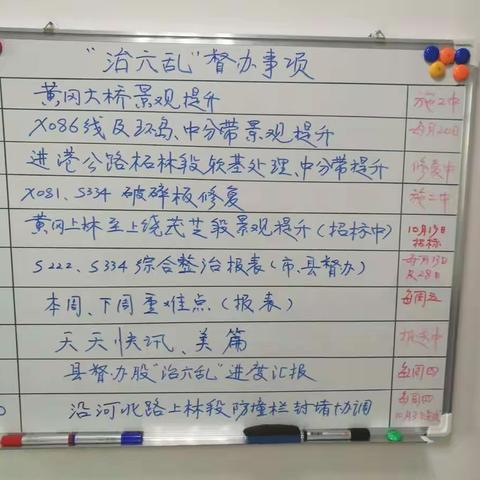 "治六乱"督办事项
黄冈大桥景观提升 施工中
X086线及环岛、中分带景观提升 每月20日
进港公路柘林段软基处理、中分带提升 修复中
X081、S334破碎板修复 施工中
黄冈上林至上饶茂芝段景观提升(招标中) 10月19日招标
S222、S334综合整治报表(市、县督办) 每月13日及28日
本周、下周重难点(报表) 每周五
天天快讯、美篇 报送中
县督办股"治六乱"进度汇报 每周四
沿河北路上林段防撞栏封堵协调 每周四